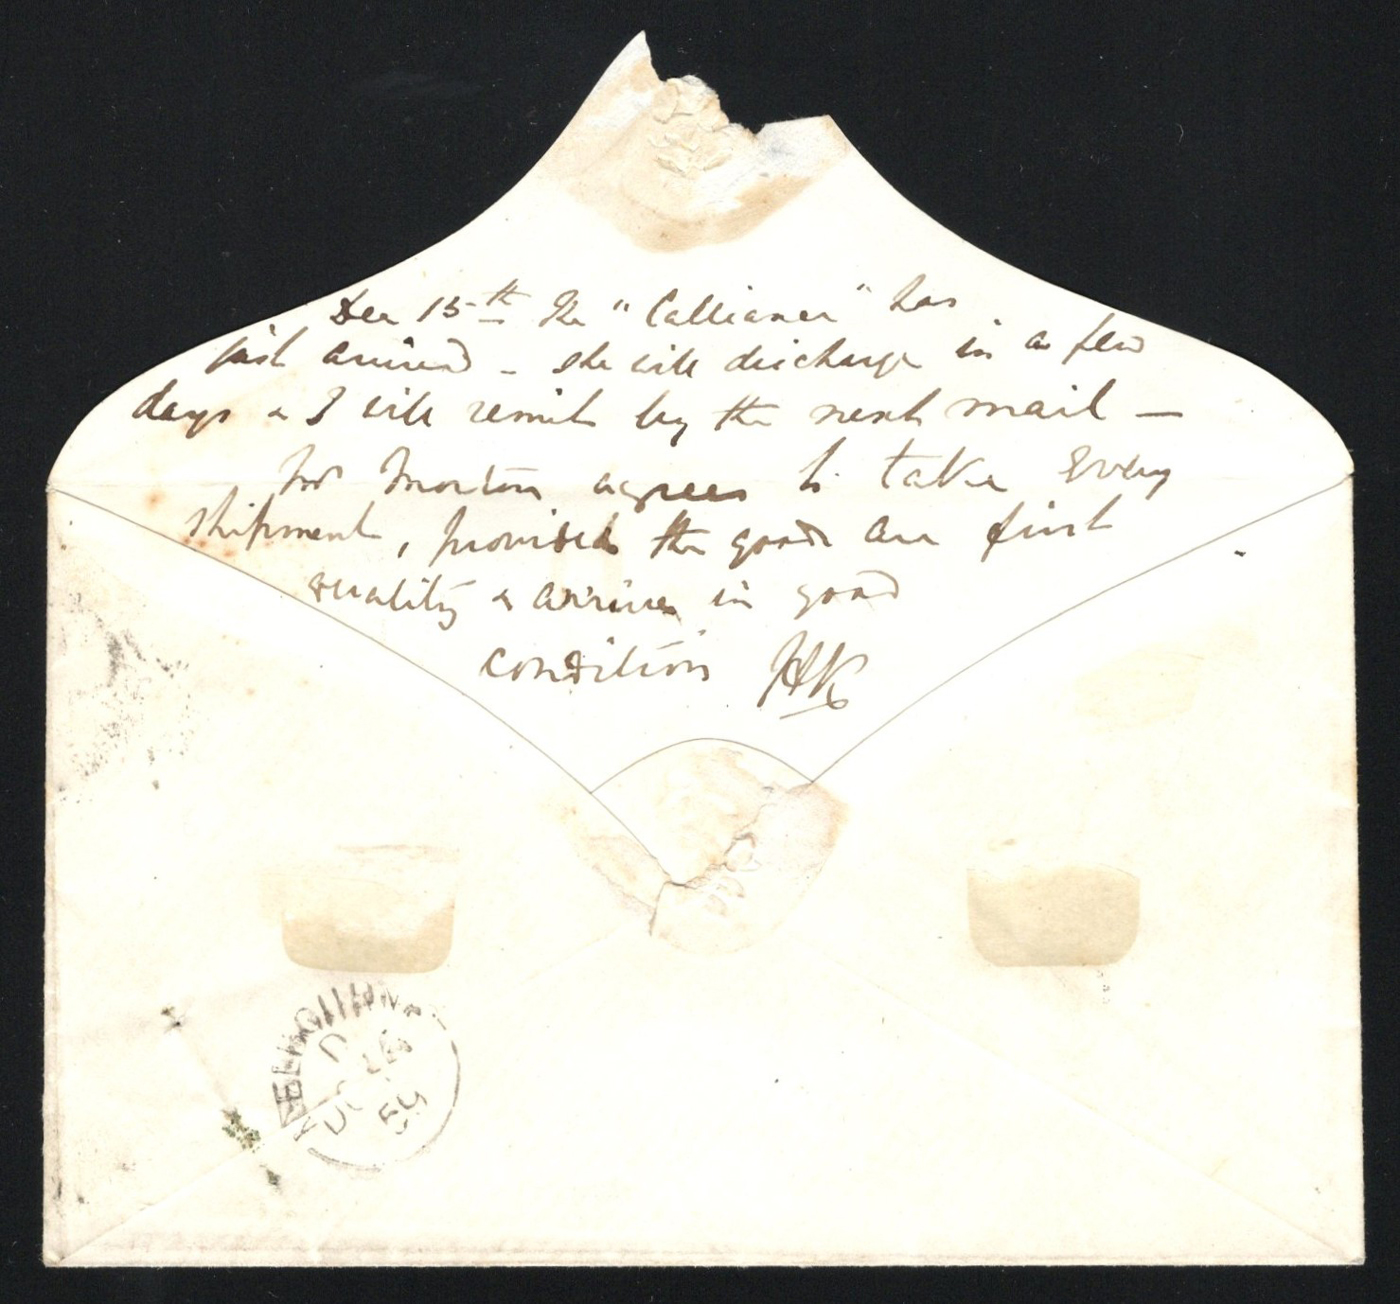 Dec 15th The "Calliance" has
just arrived - she will discharge in a few
days & I will remit by the next mail —
Mr Morton agrees to take every
shipment, provided the goods are first
quality & arrive in good
condition HK
MELBOURNE
DE 16
59